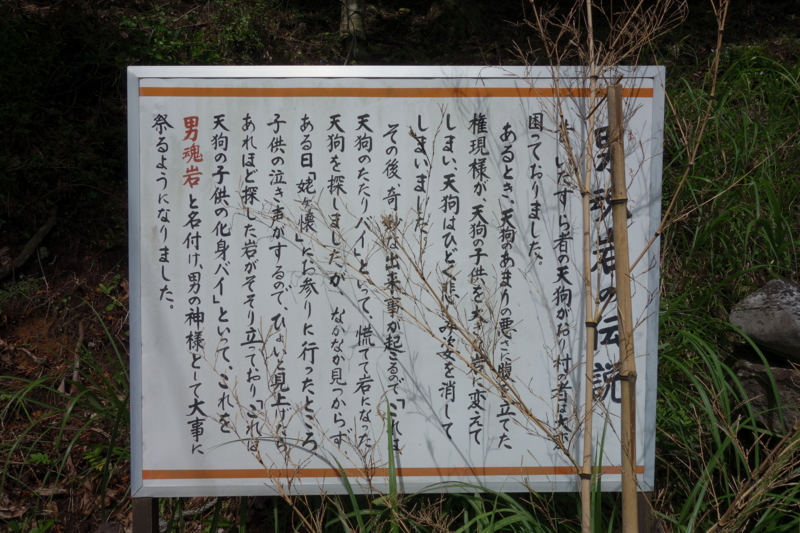 男魂岩の伝説
いたずら者の天狗がおり村者は大変
困っておりました。
あるとき、天狗のあまりの悪さに腹を立てた
権現様が、天狗の子供を大きな岩に変えて
しまい、天狗はひどく悲しみ姿を消して
しまいました。
その後、奇妙な出来事が起こるので、「これは
天狗のたたりバイ」といって、慌てて岩になった
天狗を探しましたが なかなか見つからず
ある日「姥ヶ懐」にお参りに行ったところ
子供の泣き声がするので、ひょいと見上げると
あれほど探した岩がそそり立ており、「これは
天狗の子供の化身バイ」といって、これを
男魂岩と名付け、「男の神様」として大事に
祭るようになりました。